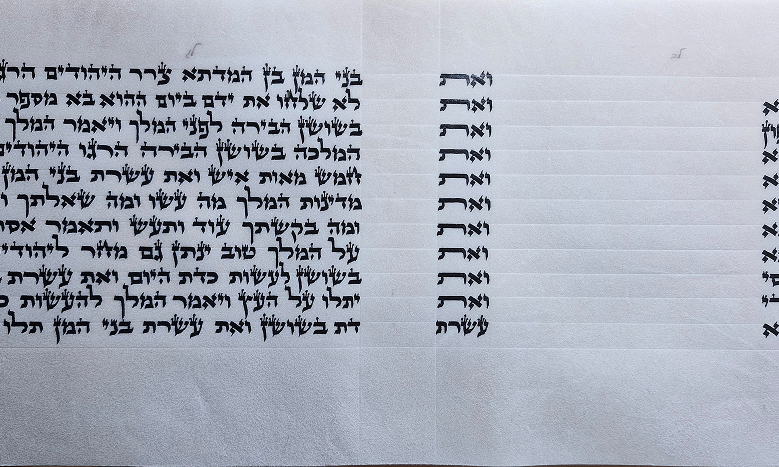 לב
ואת
ואת
ואת
ואת
ואת
ואת
ואת
ואת
ואת
ואת
עשרת
בני המן בן המדתא צרר היהודים
לא שלחו את ידם ביום ההוא בא מספר
בשושן הבירה לפני המלך ויאמר המלך
המלכה בשושן הבירה הרגו היהודים
חמש מאות איש ואת עשרת בני המן
מדינות המלך מה עשו ומה שאלתך
ומה בקשתך עוד ותעש ותאמר
על המלך טוב ינתן גם מחר
בשושן לעשות כדת היום ואת עשרת
יתלו על העץ ויאמר המלך להעשות
דת בשושן ואת עשרת בני המן תלו